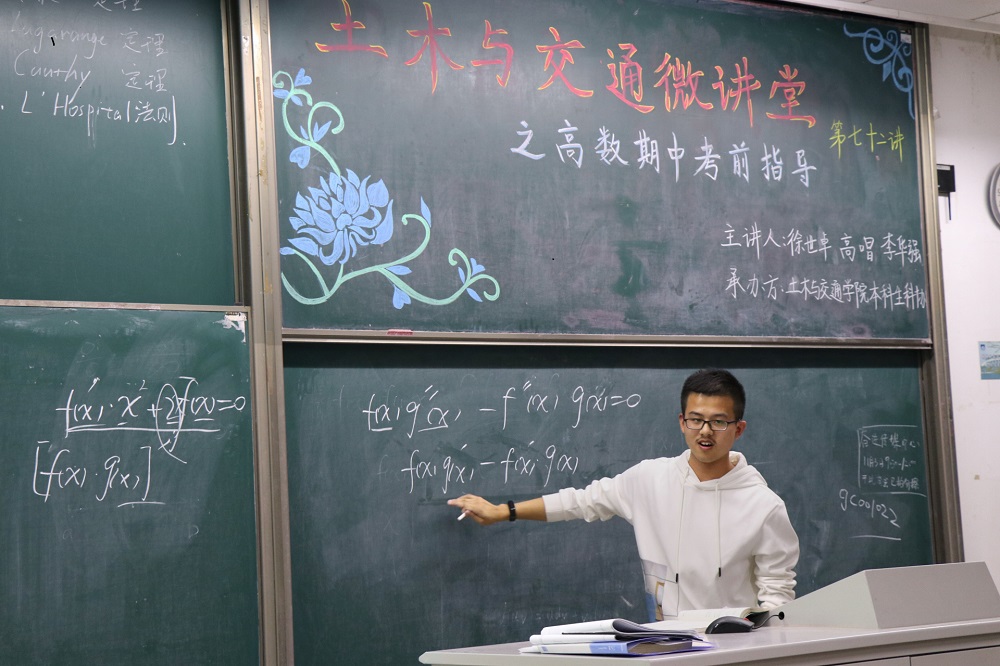 定理
Lagarange 定理
Cauthy 定理
L'Hospital法则
土木与交通微讲堂
之高数期中考前指导
第七十二讲
主讲人:徐世卓 高唱 李华强
承办方:土木与交通学院本科生科协
f(x)·x²+2xf(x)=0
[f(x)·g(x)]
f(x)g''(x)-f''(x)g(x)=0
f(x)g'(x)-f'(x)g(x)